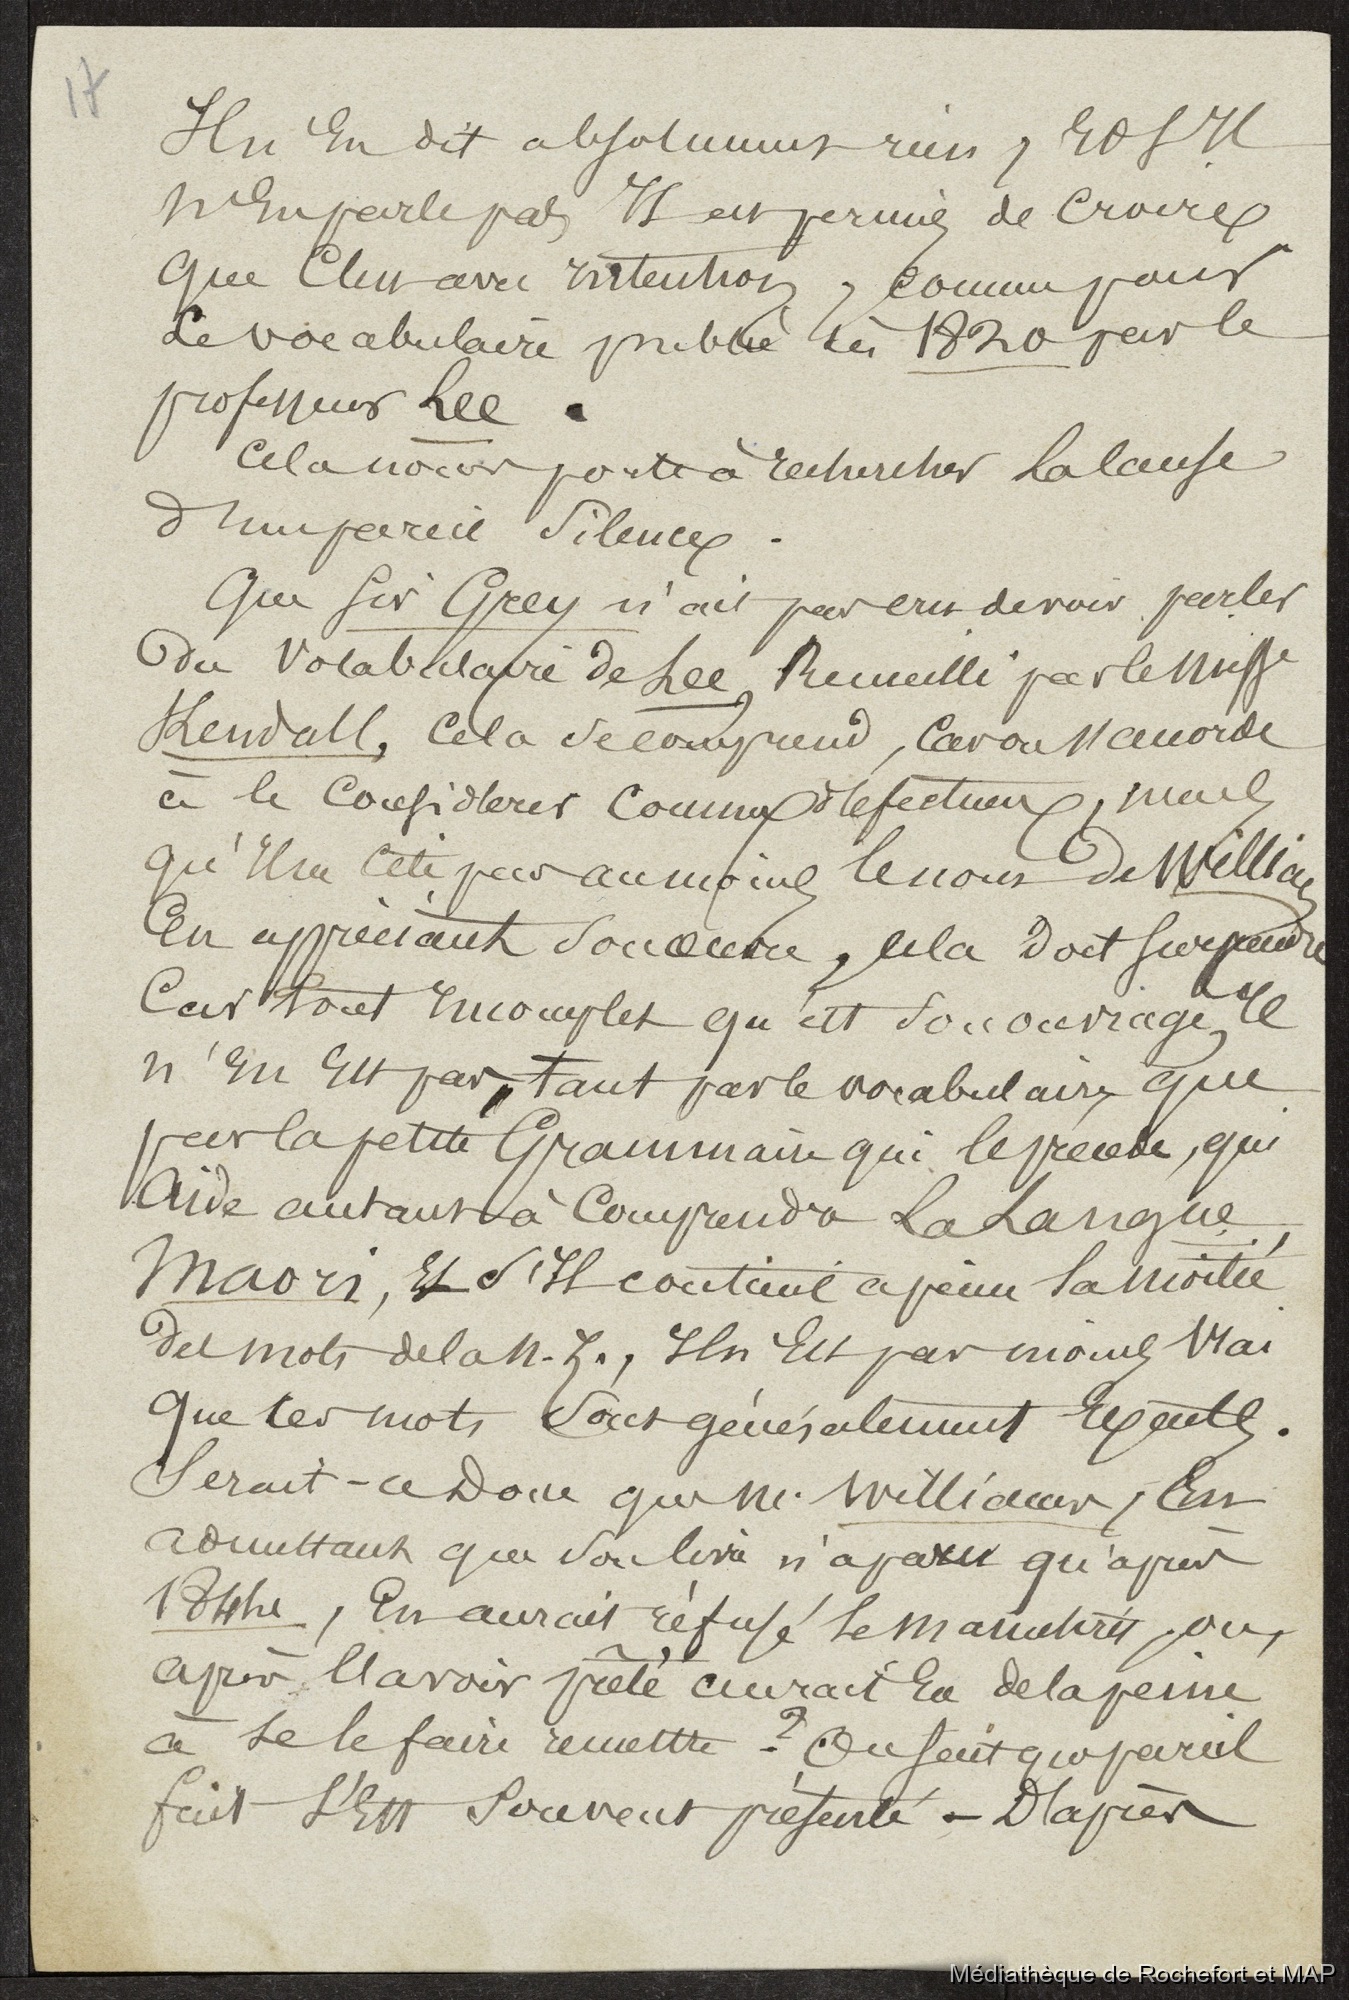 17
Il n'en dit absolument rien, et s'il
n'en parle pas, Il est permis de croire
que c'est avec intention, comme pour
le vocabulaire publié en 1820 par le
professeur Lee.
Cela nous porte à rechercher la cause
d'un pareil silence.
Que Sir Grey n'ait pas cru devoir parler
du vocabulaire de Lee, Recueilli par le Miss.re
Kendall, cela se comprend, car on s'accorde
à le considérer comme défectueux, mais
qu'Il ne cite pas au moins le nom de William
en appréciant son œuvre, cela doit surprendre
car tout incomplet qu'est son ouvrage, Il
n'en est pas, tant par le vocabulaire que
par la petite Grammaire qui le précède, qui
aide autant à comprendre La Langue
Maori, et s'Il contient à peine la moitié
des mots de la N. Z., Il n'est pas moins vrai
que ces mots sont généralement exacts.
Serait-ce donc que M. Williams, en
admettant que son livre n'a paru qu'après
1844, en aurait réfusé le manuscrit, ou,
après l'avoir prêté aurait eu de la peine
à se le faire remettre ? On sait que pareil
fait s'est souvent présenté - D'après
Médiathèque de Rochefort et MAP